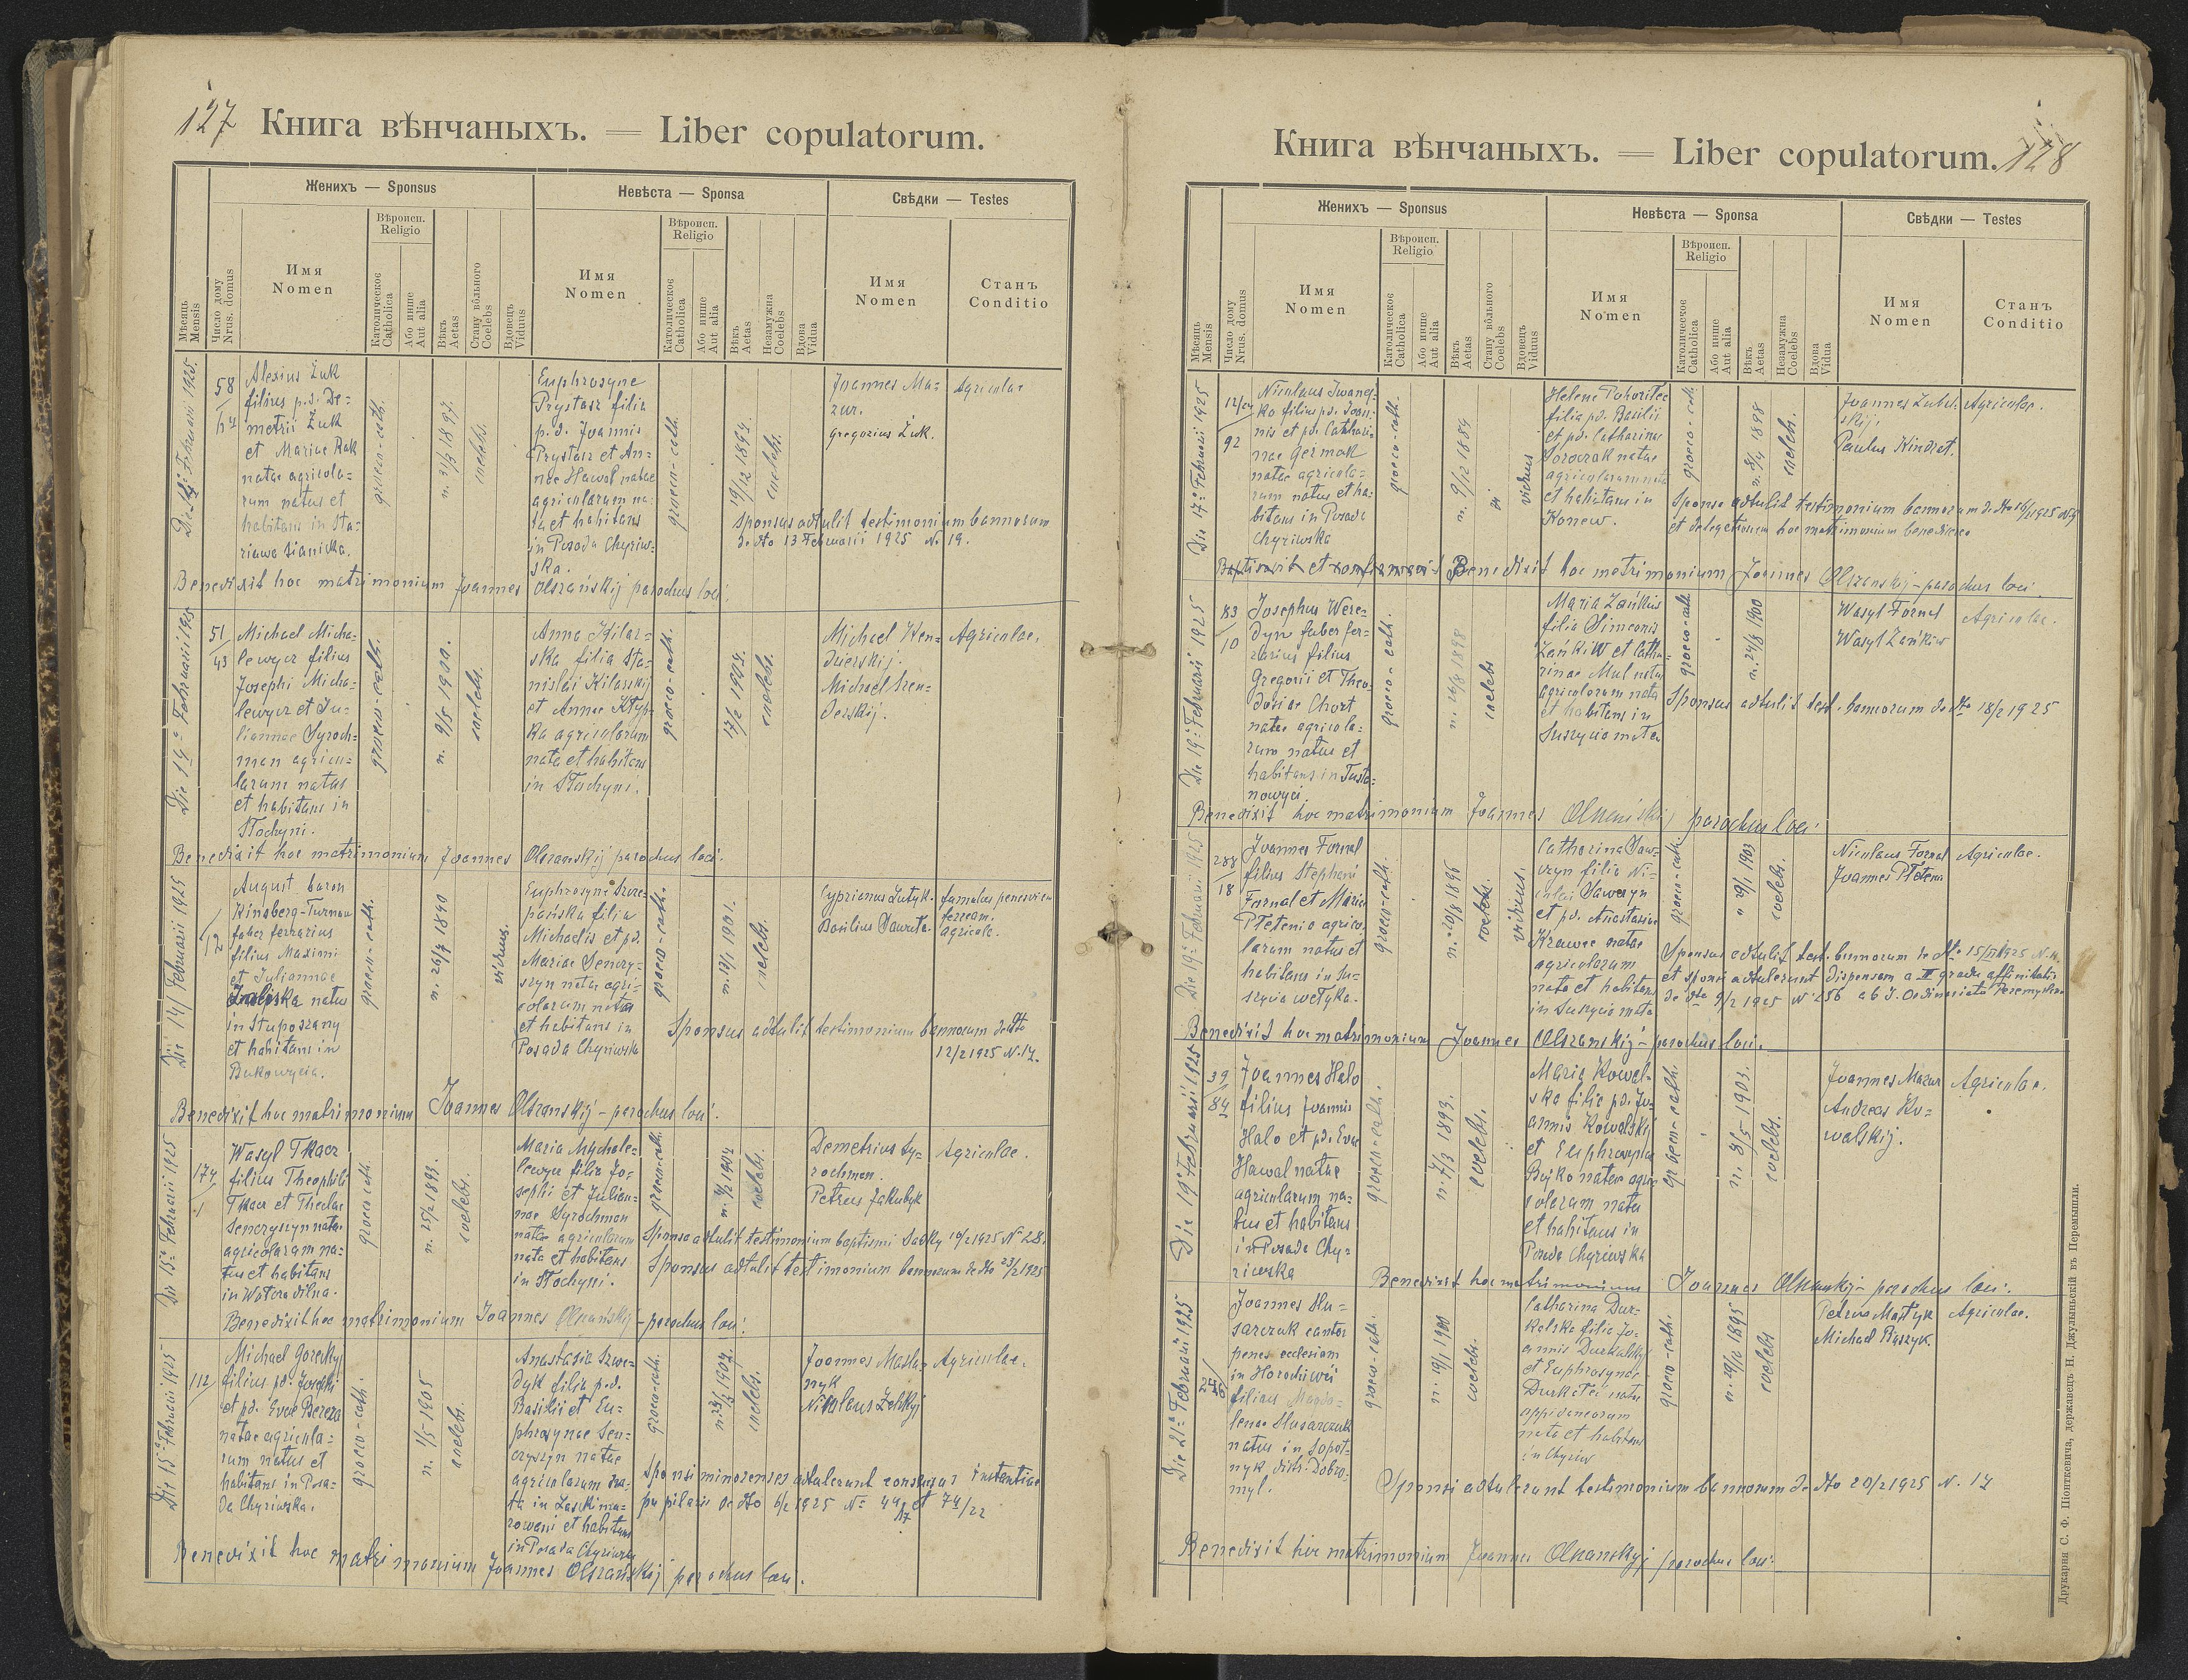 127
Книга вѣнчаныхъ. = Liber copulatorum.
Женихъ — Sponsus
Невѣста — Sponsa
Свѣдки — Testes
Мѣсяць
Mensis
Число дому
Nrus. domus
Имя
Nomen
Вѣроисп.
Religio
Католическое
Catholica
Або инше
Aut alia
Вѣкъ
Aetas
Стану вôльного
Coelebs
Вдовець
Viduus
Имя
Nomen
Вѣроисп.
Religio
Католическое
Catholica
Або инше
Aut alia
Вѣкъ
Aetas
Незамужна
Coelebs
Вдова
Vidua
Имя
Nomen
Станъ
Conditio
Februarii 1925.
58
Alexius Żuk
filius p.d. De=
metrii Żuk
et Mariae Rak
natae agricola=
rum natus et
habitans in Sta=
riawa
graeco-cath.
n. 31/3 1897.
coelebs.
Euphrosyne
Prystasz filia
p.d. Joannis
Prystasz et An=
nae Hawal natae
agricolarum na=
ta et habitans
in Posada Chyriw=
ska.
graeco-cath.
19/12 1897.
coelebs.
Joannes Ma=
zur.
Gregorius Żuk.
Agricolae
Sponsus adtulit testimonium bannorum
de dto 13 Februarii 1925 N. 19.
Benedixit hoc matrimonium Joannes Olszańskij parochus loci.
Die 14a Februarii 1925
51/43
Michael Micha=
lewycz filius
Josephi Micha=
lewycz et Ju=
liannae Syroch=
man agrico=
larum natus
et habitans in
Tłochyni.
graeco-cath.
n. 9/5 1900.
coelebs.
Anna Kilar=
ska filia Sta=
nislai Kilarskij
et Annae
agricolarum
nata et habitans
in Tłochyni.
graeco-cath.
17/2 1904.
coelebs.
Michael
Michael
Agricolae.
Benedixit hoc matrimonium Joannes Olszanskij parochus loci.
Die 14/ Februarii 1925
12
August baron
Kinsberg-Turnau
faber ferrarius
filius Maximi
et Juliannae
natus
in Stuposzany
et habitans in
Bukowycia.
graeco-cath.
n. 26/7 1890
viduus.
Euphrosyne Szcze=
pańska filia
Michaelis et p.d.
Mariae Senczy=
szyn natae agri=
colarum nata
et habitans in
Posada Chyriwska
graeco-cath.
coelebs.
Cyprianus
Basilius Sawuta.
agricola.
Sponsus adtulit testimonium bannorum de dto
12/2 1925 N. 17.
Benedixit hoc matrimonium Joannes Olszanskij - parochus loci.
Die 15a Februarii 1925
174
Wasyl Tkacz
filius Theophili
Tkacz et Theclae
Senczyszyn natae
agricolarum na=
tus et habitans
in Wolcza dilna.
graeco-cath.
n. 25/2 1893.
coelebs.
Maria Mychale=
lewycz filia Jo=
sephi et Julian=
nae Syrochman
natae agricolarum
nata et habitans
in Tłochyni.
graeco-cath.
coelebs.
Demetrius Sy=
rochman.
Petrus Jakubyk
Agricolae.
Sponsa adtulit testimonium baptismi 10/2 1925 N 28.
Sponsus adtulit testimonium bannorum de dto 23/2 1925
Benedixit hoc matrimonium Joannes Olszańskij - parochus loci.
Die 15a Februarii 1925
112
Michael Goreckyj
filius pd. Josephi
et pd. Evae Bereza
natae agricola=
rum natus et
habitans in Posa=
da Chyriwska.
graeco-cath.
n. 1/5 1905
coelebs.
Anastasia Szwe=
dyk filia p.d.
Basilii et Eu=
phrosynae Sen=
czyszyn natae
agricolarum na=
ta in
et habitans
in Posada Chyriwska
graeco-cath.
coelebs.
Joannes Masla=
nyk
Nikolaus Zelskyj
Agricolae.
Sponsi minorenses adtulerunt consensus instantiae
pupilaris de dto 6/2 1925 No
Benedixit hoc matrimonium Joannes Olszańskij parochus loci.
128
Книга вѣнчаныхъ. = Liber copulatorum.
Женихъ — Sponsus
Невѣста — Sponsa
Свѣдки — Testes
Мѣсяць
Mensis
Число дому
Nrus. domus
Имя
Nomen
Вѣроисп.
Religio
Католическое
Catholica
Або инше
Aut alia
Вѣкъ
Aetas
Стану вôльного
Coelebs
Вдовець
Viduus
Имя
Nomen
Вѣроисп.
Religio
Католическое
Catholica
Або инше
Aut alia
Вѣкъ
Aetas
Незамужна
Coelebs
Вдова
Vidua
Имя
Nomen
Станъ
Conditio
Die 17a Februarii 1925
92
Nicolaus Iwanej=
ko filius pd. Joan=
nis et pd. Cathari=
nae Germak
natae agricola=
rum natus et ha=
bitans in Posada
Chyriwska
graeco-cath.
n. 9/12 1884
viduus
Helena
filia pd. Basilii
et pd. Catharinae
natae
agricolarum nata
et habitans in
Konew.
graeco-cath.
1898
coelebs.
Joannes
Paulus Kindrat.
Agricolae.
Sponsa adtulit testimonium bannorum de dto 16/2 1925 N 9
et delegationem hoc matrimonium benedicere
Benedixit hoc matrimonium Joannes Olszanskij - parochus loci.
Die 19a Februarii 1925
83/10
Josephus Were=
dyn faber fer=
rarius filius
Gregorii et Theo=
dosiae Chort
natae agricola=
rum natus et
habitans in Susto=
nowyci.
graeco-cath.
n. 26/8 1898
coelebs
Maria Zańkiw
filia Simeonis
Zańkiw et Catha=
rinae Mul natae
agricolarum nata
et habitans in
graeco-cath
n. 24/8 1900
Wasyl Fornal
Wasyl Zańkiw
Agricolae.
Sponsus adtulit test. bannorum de dto 18/2 1925
Benedixit hoc matrimonium Joannes Olszanskij parochus loci.
Die 19a Februarii 1925
288/18
Joannes Fornal
filius Stephani
Fornal et Maria
Płetenia agrico=
larum natus et
habitans in Su=
szycia wełyka.
graeco-cath.
n. 20/8 1896
coelebs.
viduus.
Catharina Saw=
czyn filia Ni=
colai Sawczyn
et pd. Anastasiae
Krawec natae
agricolarum
nata et habitans
graeco-cath.
1903
coelebs.
Nicolaus Fornal
Joannes Płetenia
Agricolae.
Sponsus adtulit test. bannorum de dto
et sponsi adtulerunt dispensam a II gradu affinitatis
de dto 9/2 1925 N 256 ab J. Ordinariatu
Benedixit hoc matrimonium Joannes Olszanskij - parochus loci.
Die 19 Februarii 1925
39/84
Joannes Halo
filius Joannis
Halo et pd. Evae
Hawal natae
agricolarum na=
tus et habitans
in Posada Chy=
riwska
graeco-cath.
n. 7/3 1893.
coelebs.
Maria Kowal=
ska filia pd. Jo=
annis Kowalskij
et Euphrosynae
Bojko natae agri=
colarum nata
et habitans in
Posada Chyriwska
graeco-cath.
n. 8/5 1903.
coelebs.
Joannes Mazur
Andreas Ko=
walskij.
Agricolae.
Benedixit hoc matrimonium Joannes Olszanskij - parochus loci.
Die 21a Februarii 1925
Joannes Slu=
sarczuk cantor
penes ecclesiam
in
filius Magda=
lenae Slusarczuk
natus in Sopot=
nyk distr. Dobro=
myl.
graeco-cath.
n. 19/1 1900
coelebs.
Catharina Dur=
kalska filia Jo=
annis Durkalskyj
et Euphrosynae
natae
oppidaneorum
nata et habitans
in Chyriw
graeco-cath.
1895
coelebs
Petrus Matyk
Michael
Agricolae.
Sponsi adtulerunt testimonium bannorum de dto 20/2 1925 N. 17
Benedixit hoc matrimonium Joannes Olszanskyj parochus loci.
Друкарня С. Ф. Піонткевича, державець Н. Джулыньскій въ Перемышли.